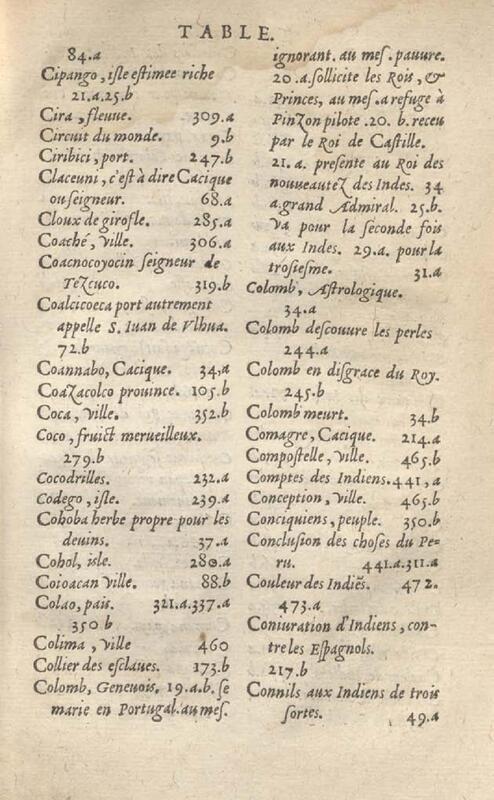 TABLE.
84.a
Cipango, isle estimee riche
21.a.25.b
Cira, fleuue. 309.a
Circuit du monde. 9.b
Ciribici, port. 247.b
Claceuni, c'est à dire Cacique
ou seigneur. 68.a
Cloux de girofle. 285.a
Coaché, ville. 306.a
Coacnocoyocin seigneur de
Tezcuco. 319.b
Coalcicoeca port autrement
appelle S. Iuan de Vlhua.
72.b
Coannabo, Cacique. 34,a
Coazacolco prouince. 105.b
Coca, ville. 352.b
Coco, fruict merueilleux.
279.b
Cocodrilles. 232.a
Codego, isle. 239.a
Cohoba herbe propre pour les
deuins. 37.a
Cohol, isle. 280.a
Coioacan ville. 88.b
Colao, pais. 321.a.337.a
350 b
Colima, ville 460
Collier des esclaues. 173.b
Colomb, Geneuois. 19.a.b. se
marie en Portugal. au mes.
ignorant. au mes. pauure.
20.a. sollicite les Rois, &
Princes, au mes. a refuge à
Pinzon pilote .20. b. receu
par le Roi de Castille.
21. a. presente au Roi des
nouueautez des Indes. 34
a. grand Admiral. 25.b.
va pour la seconde fois
aux Indes. 29.a. pour la
trosiesme. 31.a
Colomb, Astrologique.
34.a
Colomb descouure les perles
244.a
Colomb en disgrace du Roy.
245.b
Colomb meurt. 34.b
Comagre, Cacique. 214.a
Compostelle, ville. 465.b
Comptes des Indiens. 441,a
Conception, ville. 465.b
Conciquiens, peuple. 350.b
Conclusion des choses du Pe-
ru. 441.a.311.a
Couleur des Indiēs. 472.
473.a
Coniuration d'Indiens, con-
tre les Espagnols.
217.b
Connils aux Indiens de trois
sortes. 49.a